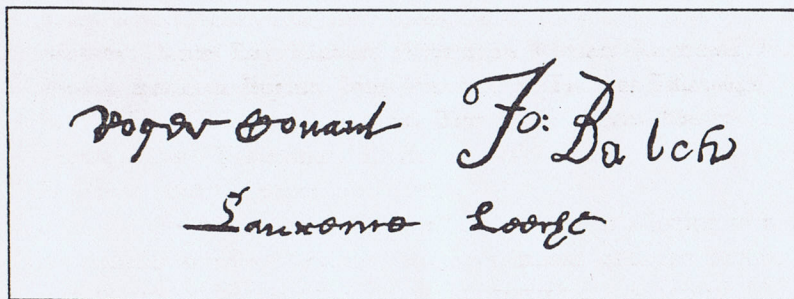 Roger Conant Jo: Balch
Laurence Leech